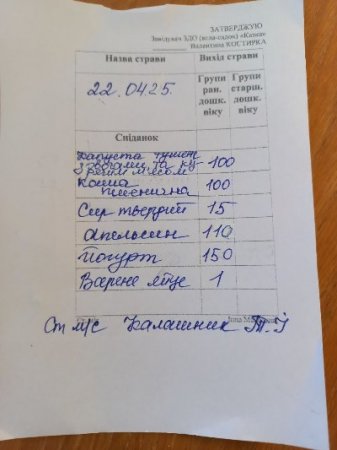 ЗАТВЕРДЖУЮ
Завідувач ЗДО (ясла-садок) «Казка»
Валентина КОСТИРКА
Назва страви Вихід страви
22.04.25. Групи ран. дошк. віку Групи старш. дошк. віку
Сніданок
Капуста тушт
з овочами та ку-
рячим м'ясом 100
Каша
пшенична 100
Сир твердий 15
Апельсин 110
Йогурт 150
Варене яйце 1
Ст м/с Калашник Т.І